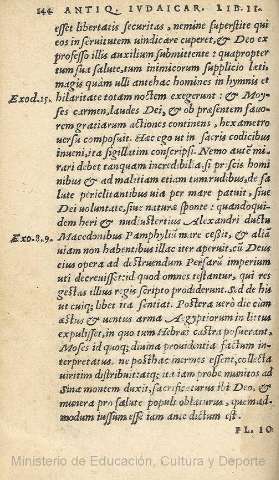 144 ANTIQ. IVDAICAR. LIB. II.
esset libertatis securitas, nemine superstite qui
eos in seruitutem uindicare cuperet, & Deo ex
professo illis auxilium submittente: quapropter
tum sua salute, tum inimicorum supplicio læti
magis quàm ulli antehac homines in hymnis et
Exod.15. hilaritate totam noctem exegerunt: & Moy-
ses carmen, laudes Dei, & ob præsentem fauo-
rem gratiarum actiones continens, hexametro
uersu composuit. Hæc ego ut in sacris codicibus
inueni, ita sigillatim conscripsi. Nemo autē mi-
rari debet tanquam incredibila, si priscis homi
nibus & ad malitiam etiam tum rudibus, de sa
lute periclitantibus uia per mare patuit, siue
Dei uoluntate, siue naturæ sponte: quandoqui-
dem heri & nudiustertius Alexandri ductu
Exo.8.9. Macedonibus Pamphyliū mare cessit, & aliā
uiam non habentibus illac iter aperuit, cū Deus
eius opera ad destruendum Persarū imperium
uti decreuisset: id quod omnes testantur, qui res
gestas illius regis scripto prodiderunt. Sed de his
ut cuiq; libet ita sentiat. Postera uerò die cùm
æstus & uentus arma Ægyptiorum in litus
expulisset, in quo tum Hebræi castra posuerant,
Moses id quoq; diuina prouidentia factum in-
terpretatus, ne posthac inermes essent, collecta
uiritim distribuit: atq; ita iam probe munitos ad
Sina montem duxit, sacrificaturus ibi Deo, &
munera pro salute populi oblaturus, quemad-
modum iussum esse iam ante dictum est.
FL. IO
Ministerio de Educación, Cultura y Deporte